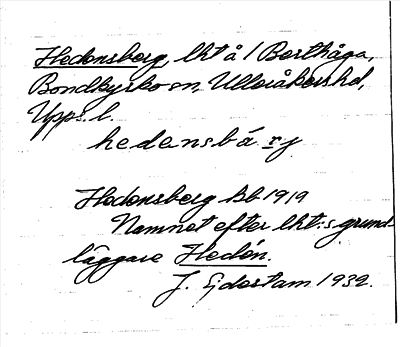 Hedensberg, lht å 1 Berthåga,
Bondkyrko sn, Ulleråkers hd,
Upps. l.
hedensbárj
Hedensberg Bb 1919
Namnet efter lht:s grund-
läggare Hedén.
J. Ejdestam 1932.